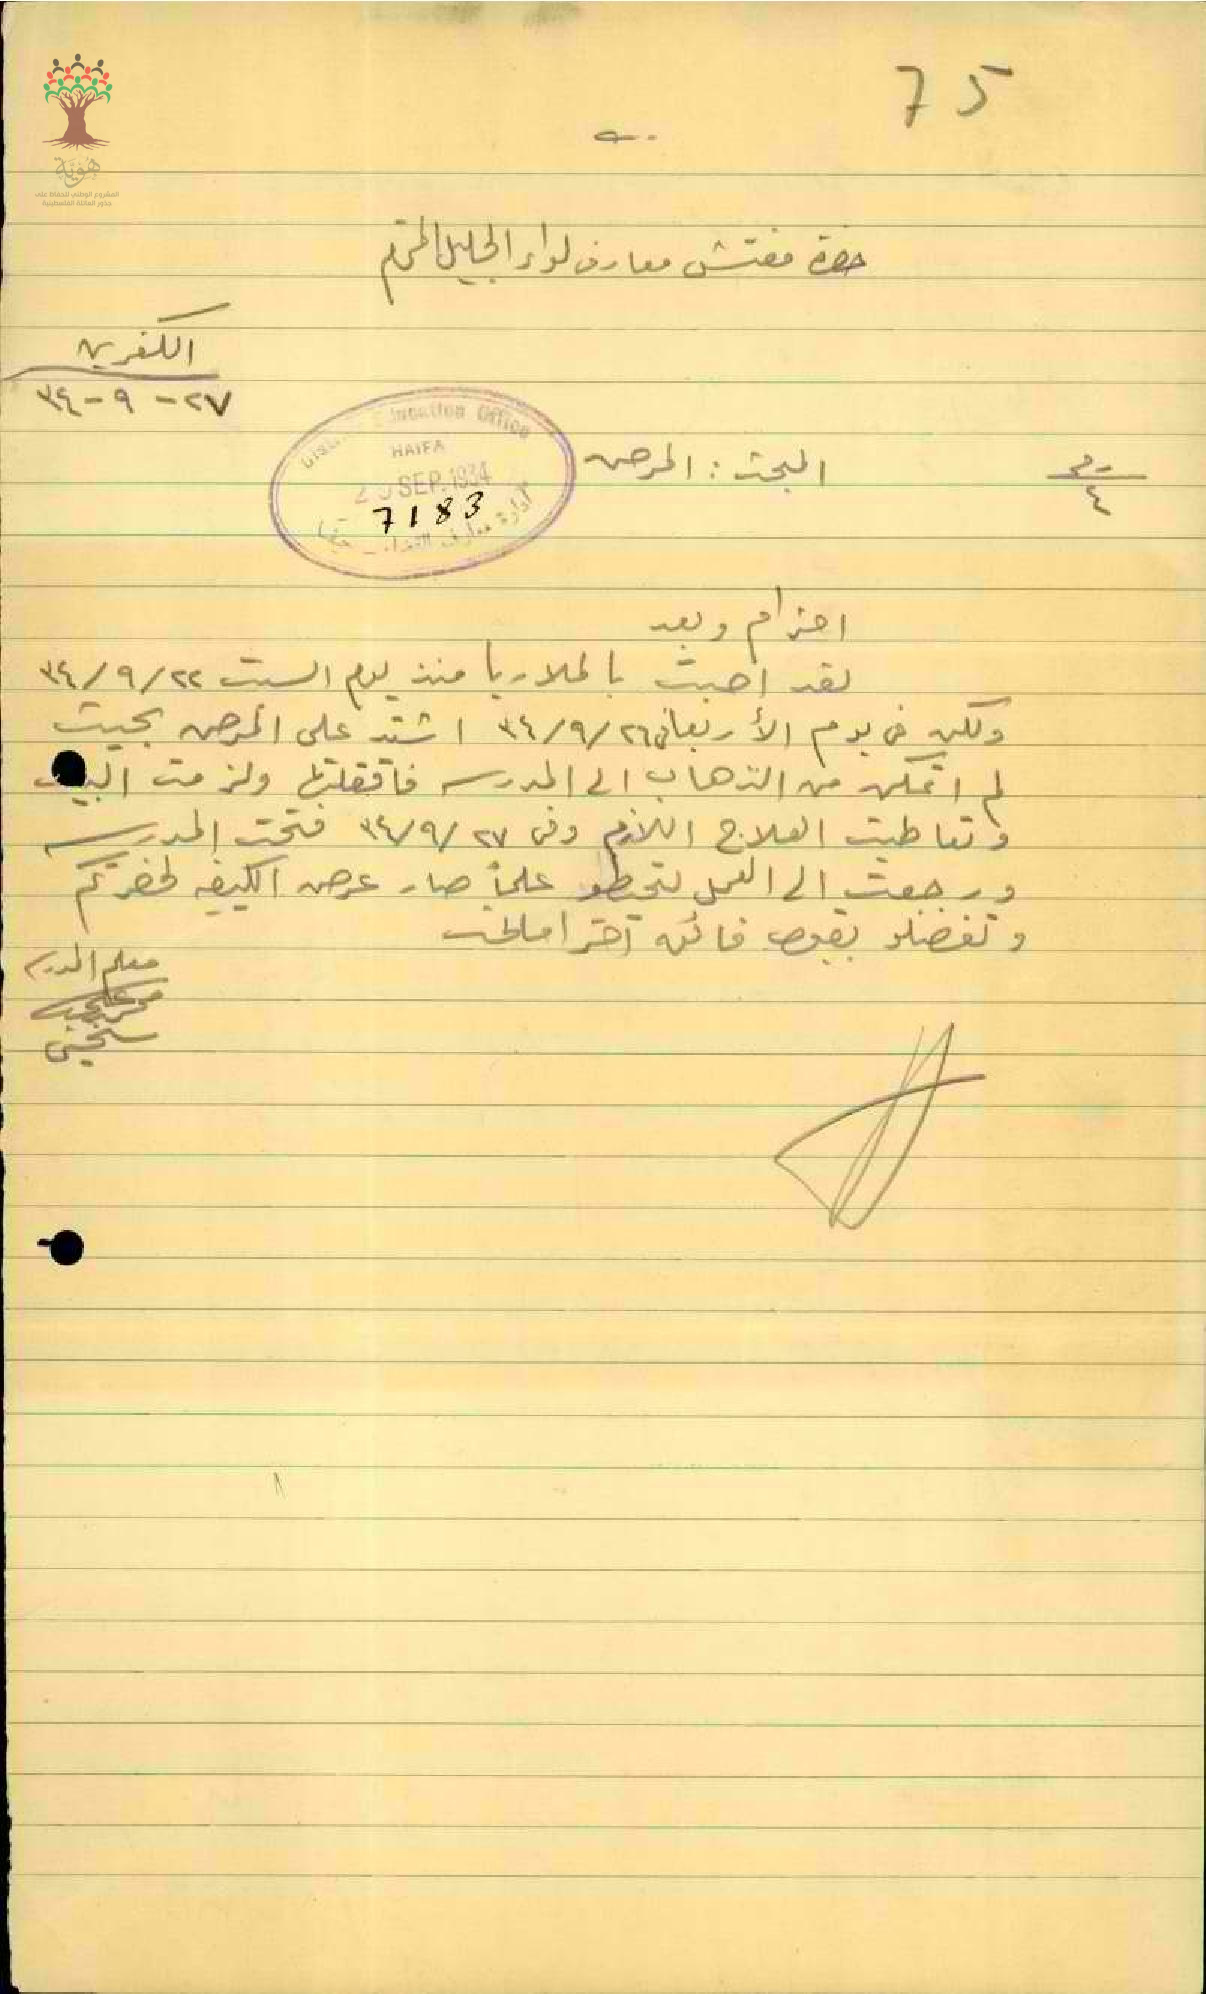 75
هُوِيَّة
المشروع الوطني للحفاظ على
جذور العائلة الفلسطينية
حضرة مفتش معارف لواء الجليل المحترم
الكفرين
٢٧-٩-٣٤
District Education Office
HAIFA
SEP. 1934
7183
ادارة معارف القضاء - حيفا
٤
البحث : المرض
احترام وبعد
لقد اصبت بالملاريا منذ يوم السبت ٢٢/٩/٣٤
ولكن في يوم الأربعاء ٢٦/٩/٣٤ اشتد على المرض بحيث
لم اتمكن من الذهاب الى المدرسه فاقفلتها ولزمت البيت
وتعاطيت العلاج اللازم وفي ٢٧/٩/٣٤ فتحت المدرسه
ورجعت الى العمل لتحيطو علماً صار عرض الكيفيه لحضرتكم
وتفضلو بقبول فائق احتراماتي
معلم المدرسه